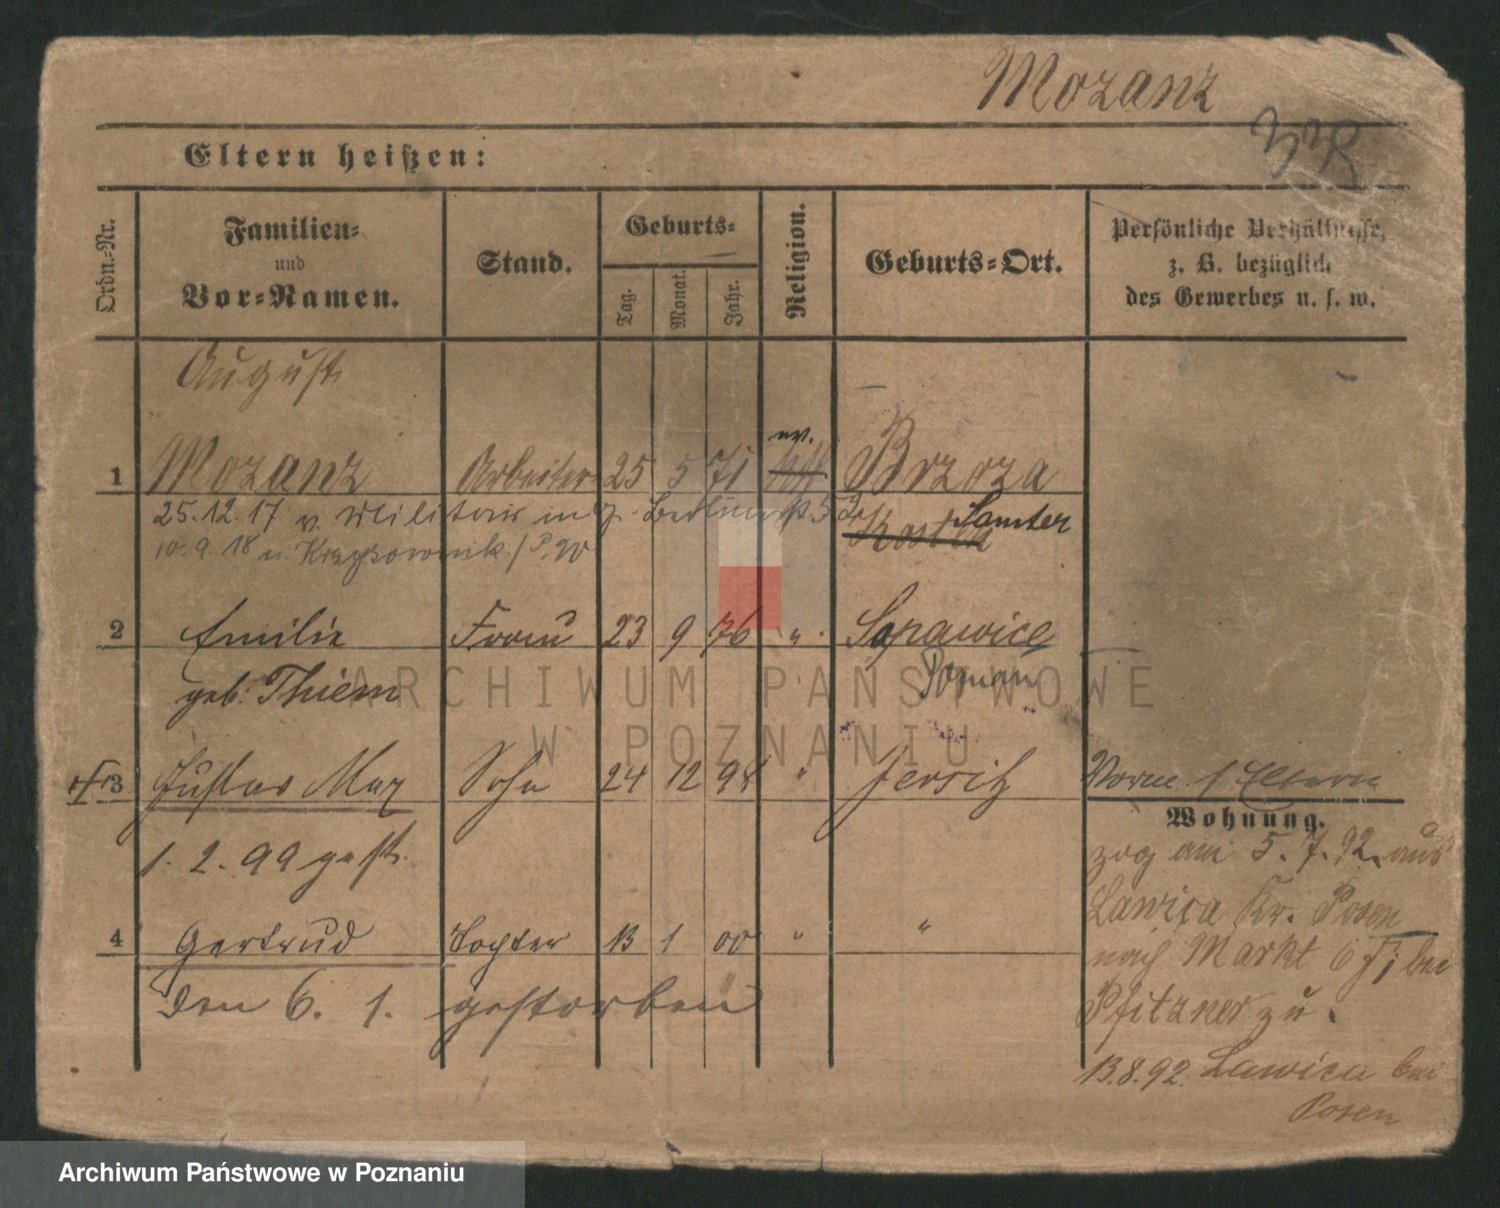 Mozanz
338
Eltern heißen:
Ordn.-Nr.
Familien-
und
Vor-Namen.
Stand.
Geburts-
Tag.
Monat.
Jahr.
Religion.
Geburts-Ort.
Persönliche Verhältnisse,
z. B. bezüglich
des Gewerbes u. s. w.
August
ev.
1 Mozanz Arbeiter 25 5 71 Brzoza
25.12.17 v. Militair in
Samter
10.9.18 u.
2 Emilie Frau 23 9 76 "
geb. Thiem
Posen
3 Gustav Max Sohn 24 12 98 " Jersitz
Vorm. s. Eltern
Wohnung.
1. 2. 99 gest.
zog am 5. 7. 92. aus
Lawica Kr. Posen
4 Gertrud Tochter 13 1 00 " "
nach Markt 6 bei
den 6. 1. gestorben
Pfitzner zu.
13.8.92. Lawica bei
Posen
ARCHIWUM PAŃSTWOWE
W POZNANIU
Archiwum Państwowe w Poznaniu